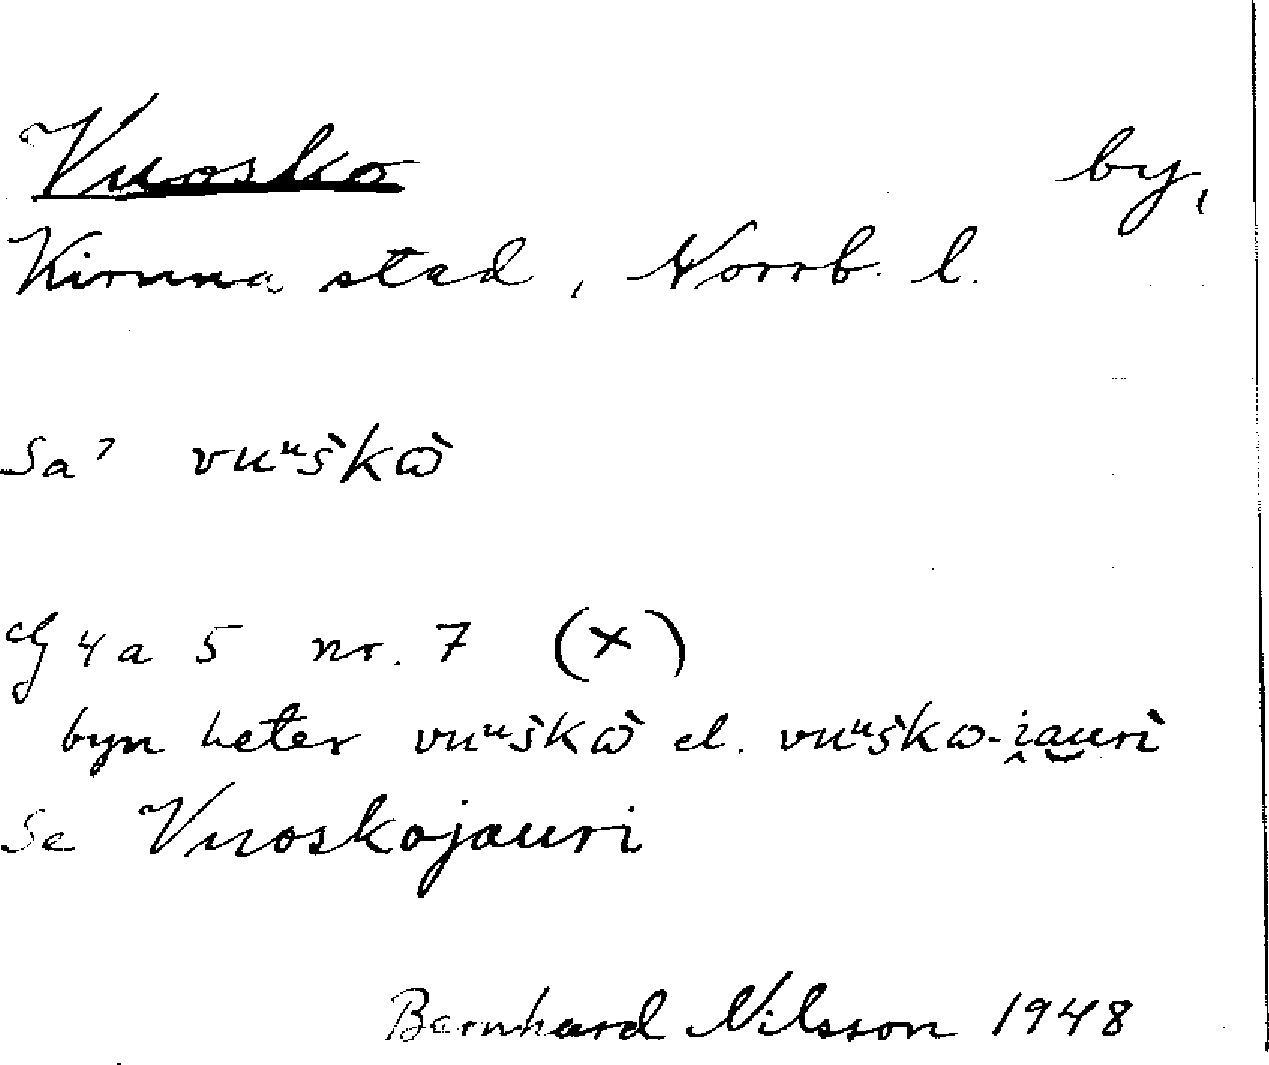 Vuosko by,
Kiruna stad, Norrb. l.
Sa⁷ vuᵘs̀kɷ̀
4a 5 nr. 7 (x)
byn heter vuᵘs̀kɷ̀ el. vuᵘs̀kɷ-i̯au̯rì
Se Vuoskojauri
Bernhard Nilsson 1948